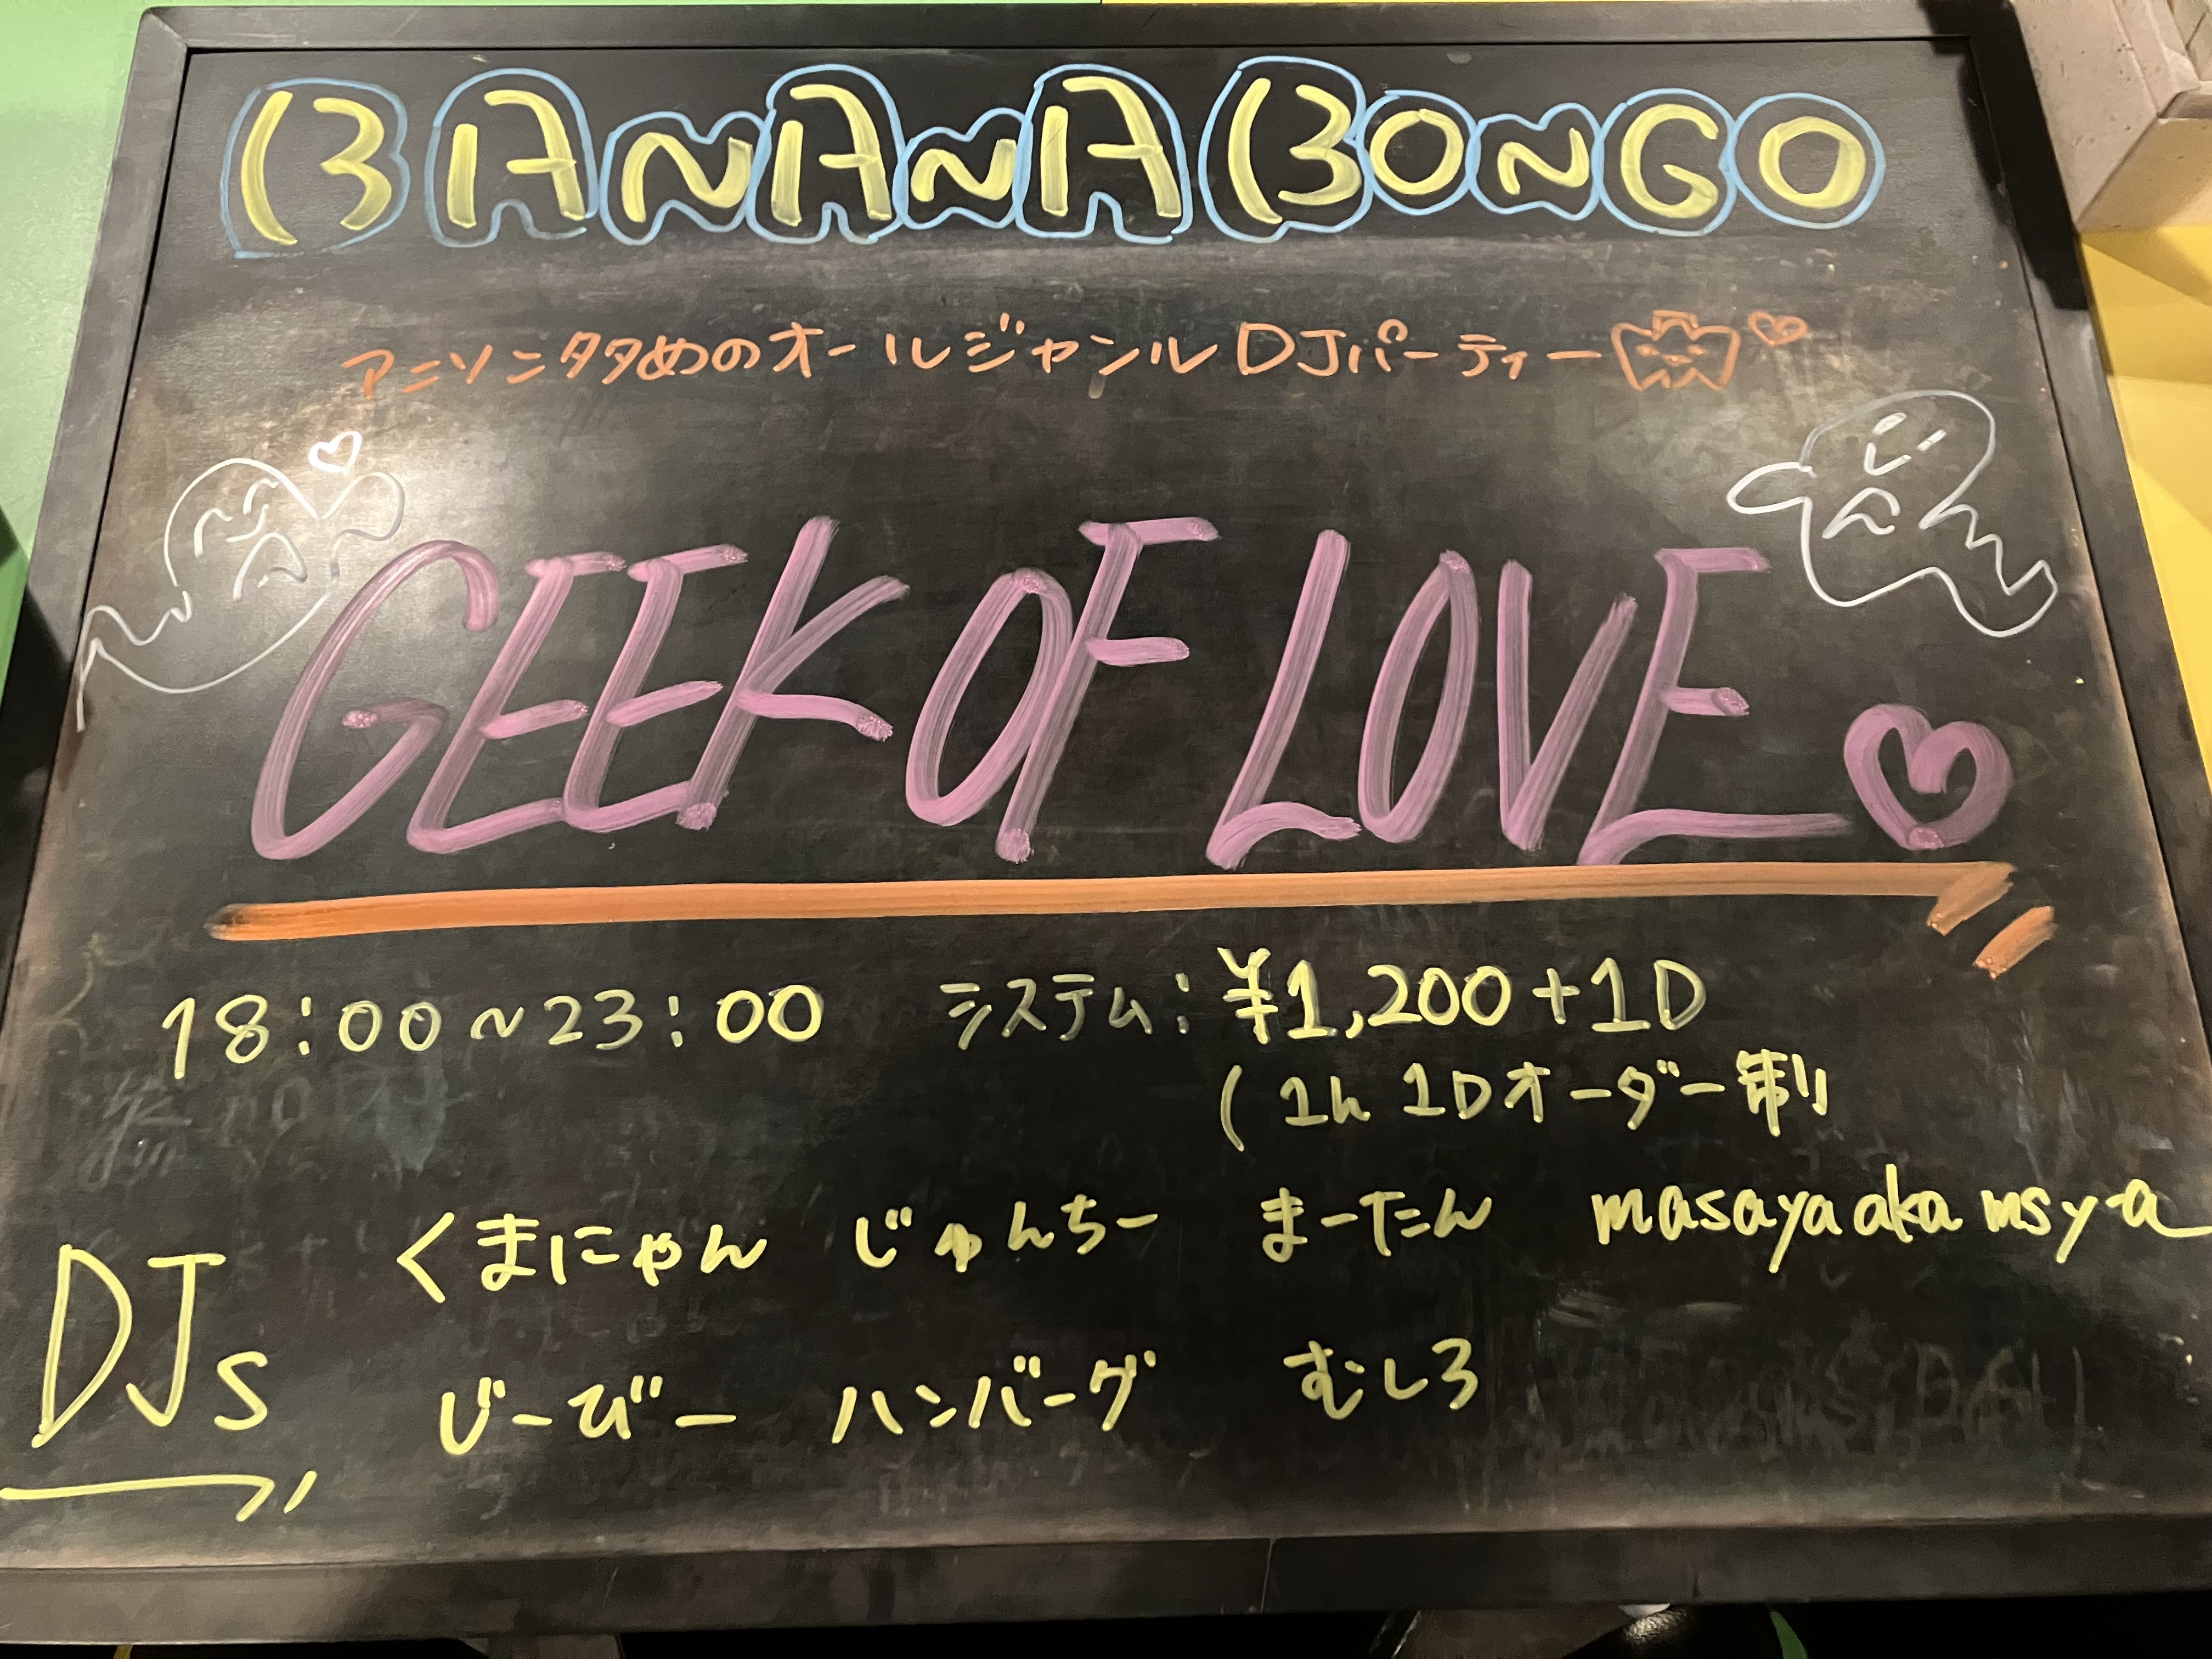 BANANA BONGO
アニソン多めのオールジャンルDJパーティー
GEEK OF LOVE
18:00~23:00 システム:¥1,200+1D
(1h 1Dオーダー制
DJs
くまにゃん じゅんちー まーたん masayaaka msy-a
じーびー ハンバーグ むしろ